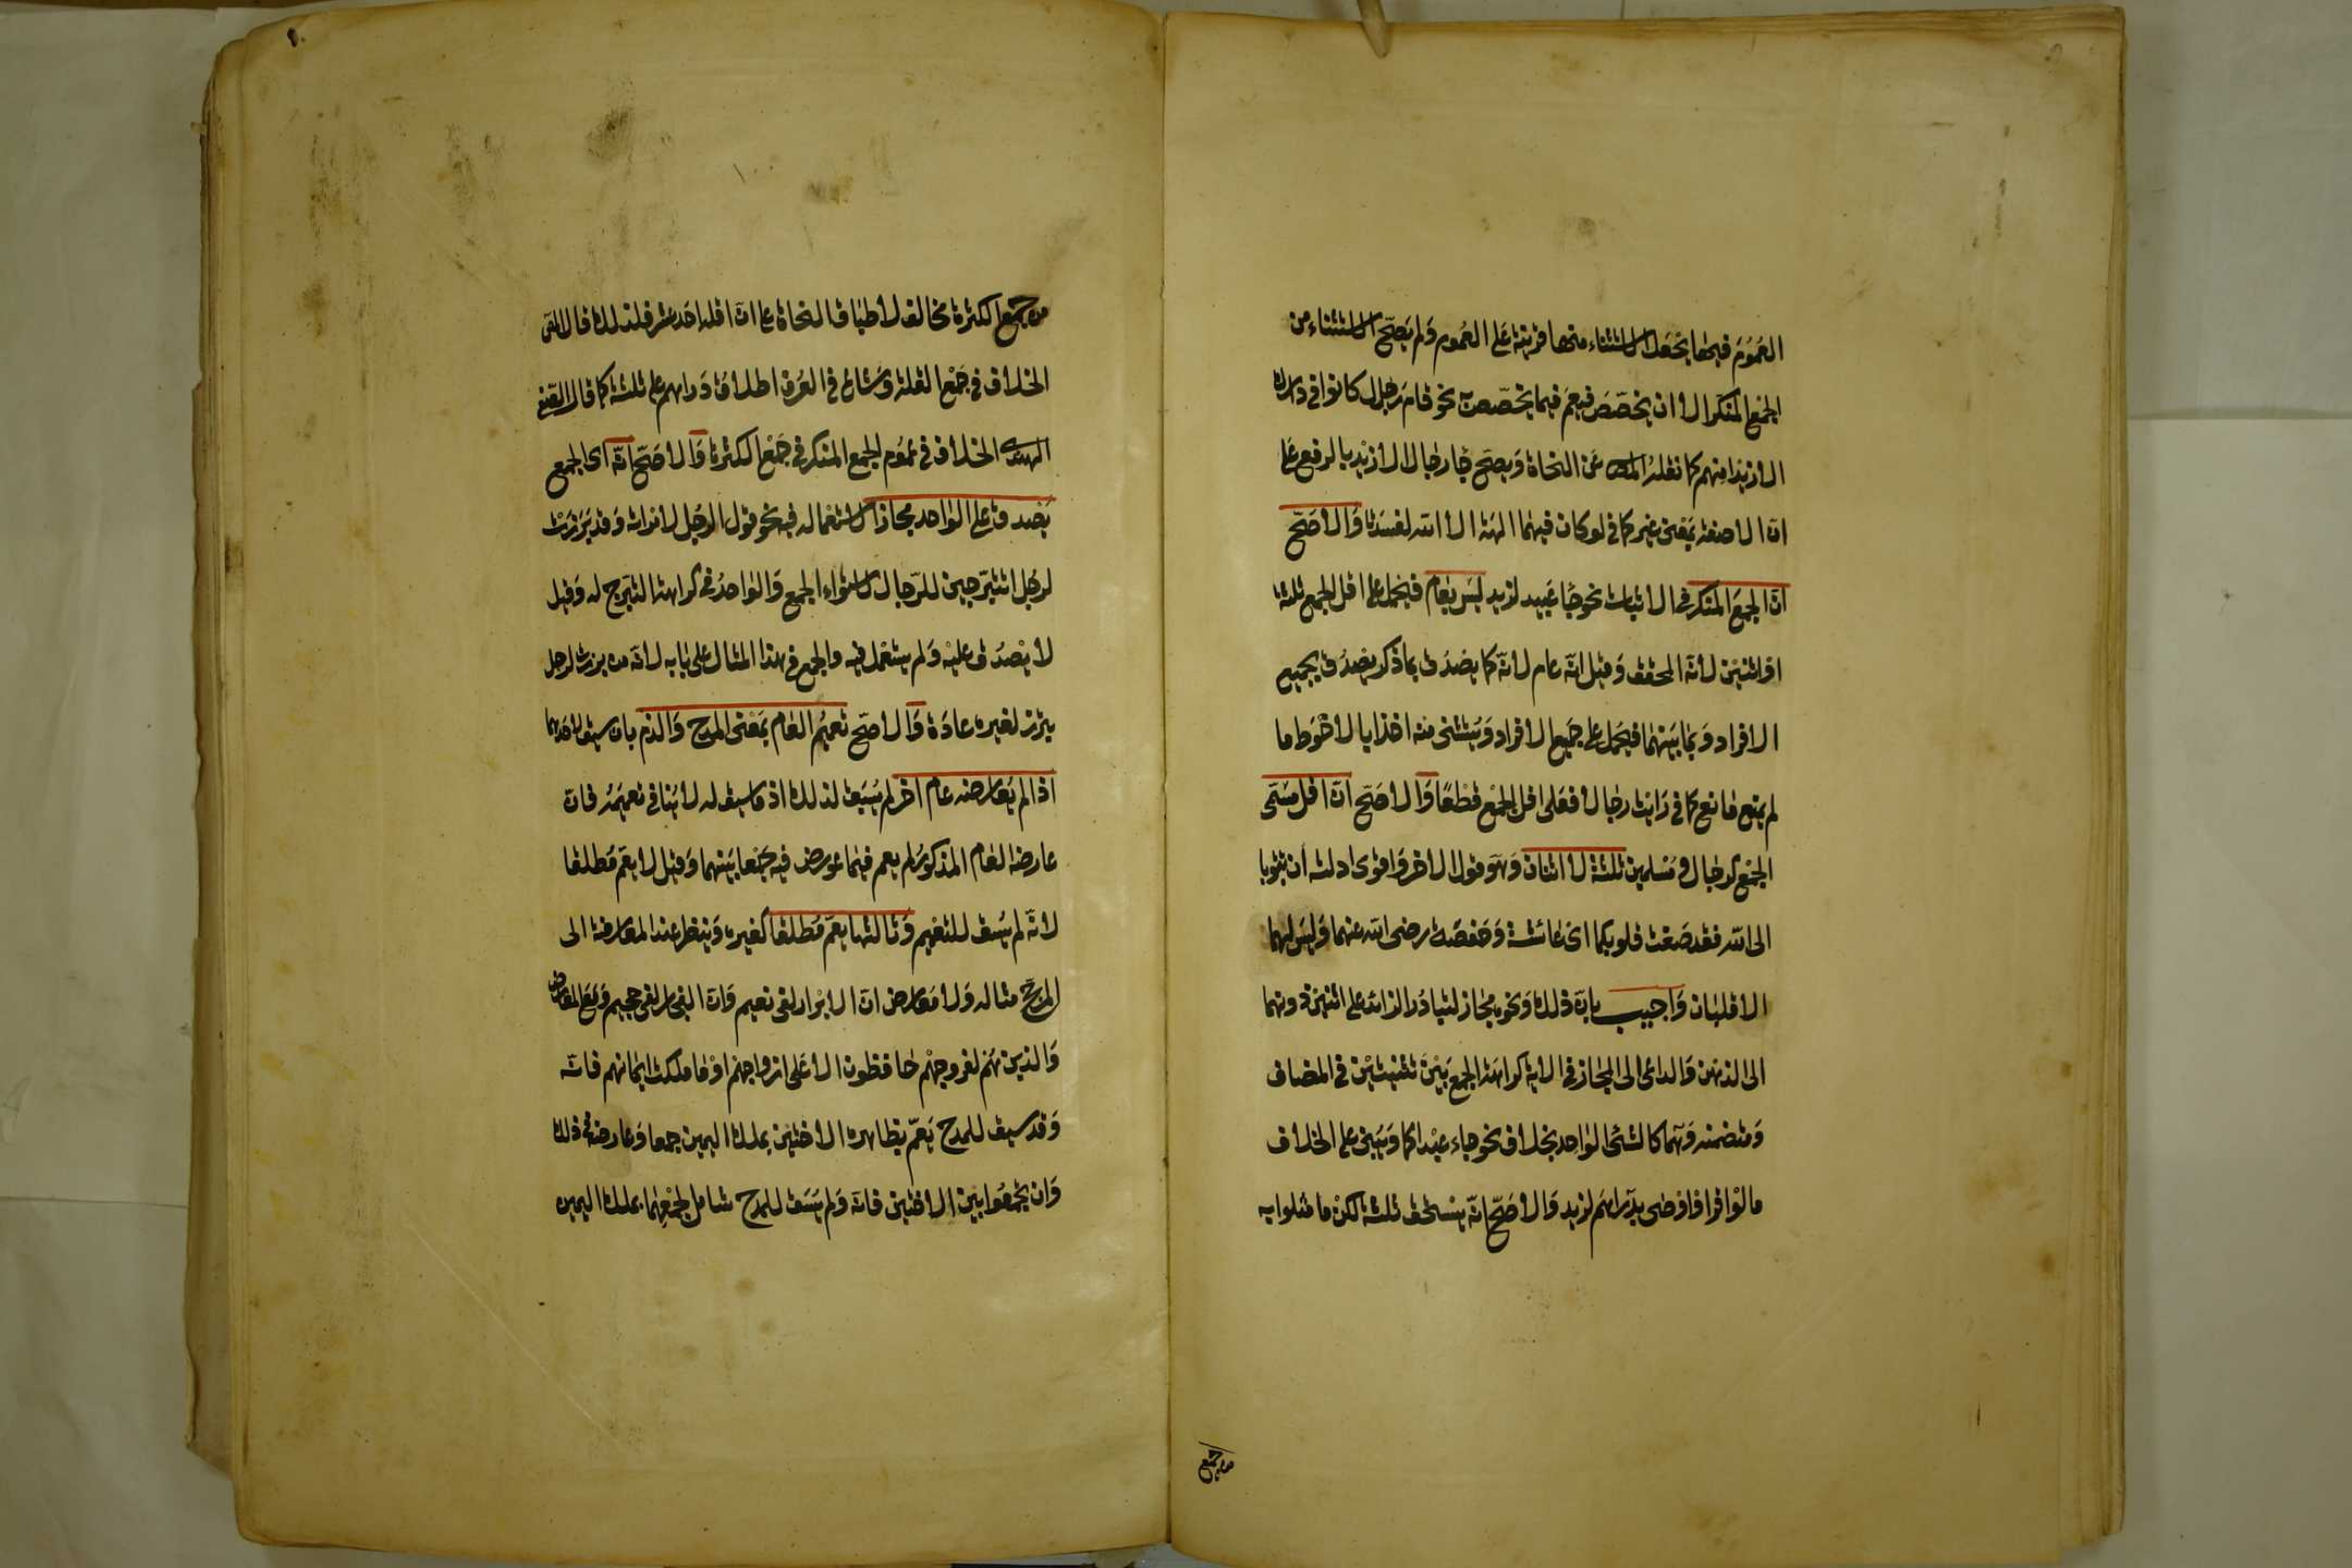 العموم فيها بجعل الاستثناء منها قرينة على العموم ولم يصح الاستثناء من
الجمع المنكر الا ان يخصص فيعم فيما يتخصص نحو قام رجال كانوا في دارك
الا زيدا منهم كما نقله المص عن النحاة ويصح جا رجال الا زيد بالرفع على
ان الا صفة بمعنى غير كما في لو كان فيهما الهة الا الله لفسدتا والاصح
ان الجمع المنكر في الاثبات نحو جا عبيد لزيد ليس بعام فيحمل على اقل الجمع ثلثة
او اثنين لانه المحقق وقيل انه عام لانه كما يصدق بما ذكر يصدق بجميع
الافراد وبما بينهما فيحمل على جميع الافراد ويستثنى منه اخذا بالاحوط ما
لم يمنع مانع كما في رايت رجالا فعلى اقل الجمع قطعا والاصح ان اقل مسمى
الجمع كرجال ومسلمين ثلثة لا اثنان وهو قول الاخر واقوى ادلته ان تتوبا
الى الله فقد صغت قلوبكما اى عائشة وحفصة رضى الله عنهما وليس لهما
الا قلبان واجيب بان ذلك ونحوه مجاز لتبادر الزائد على اثنين دونهما
الى الذهن والداعى الى المجاز في الاية كراهة الجمع بين تثنيتين في المضاف
ومتضمنه وهما كالشئ الواحد بخلاف نحو جاء عبداكما وينبنى على الخلاف
ما لو اقر او اوصى بدراهم لزيد والاصح انه يستحق ثلثة لكن ما مثلوا به
من جمع
من جمع الكثرة مخالف لاطباق النحاة على ان اقله احد عشر فلذلك قال المص
الخلاف في جمع القلة وشاع في العرف اطلاق دراهم على ثلثة كما قال الصفى
الهندى الخلاف في عموم الجمع المنكر في جمع الكثرة والاصح انه اى الجمع
يصدق على الواحد مجازا لاستعماله فيه نحو قول الرجل لامراته وقد برزت
لرجل اتتبرجين للرجال لاستواء الجمع والواحد في كراهة التبرج له وقيل
لا يصدق عليه ولم يستعمل فيه والجمع في هذا المثال على بابه لان من برزت لرجل
تبرز لغيره عادة والاصح تعميم العام بمعنى المدح والذم بان سيق لاحدهما
اذا لم يعارضه عام اخر لم يسبق لذلك اذ ما سيق له لا ينافى تعميمه فان
عارضه العام المذكور لم يعم فيما عورض فيه جمعا بينهما وقيل لا يعم مطلقا
لانه لم يسق للتعميم وثالثها يعم مطلقا كغيره وينظر عند المعارضة الى
المرجح مثاله ولا معارض ان الابرار لفى نعيم وان الفجار لفى جحيم ومع المعارض
والذين هم لفروجهم حافظون الا على ازواجهم او ما ملكت ايمانهم فانه
وقد سيق للمدح يعم بظاهره الاختين بملك اليمين جمعا وعارضه في ذلك
وان تجمعوا بين الاختين فانه ولم يسق للمدح شامل لجمعهما بملك اليمين